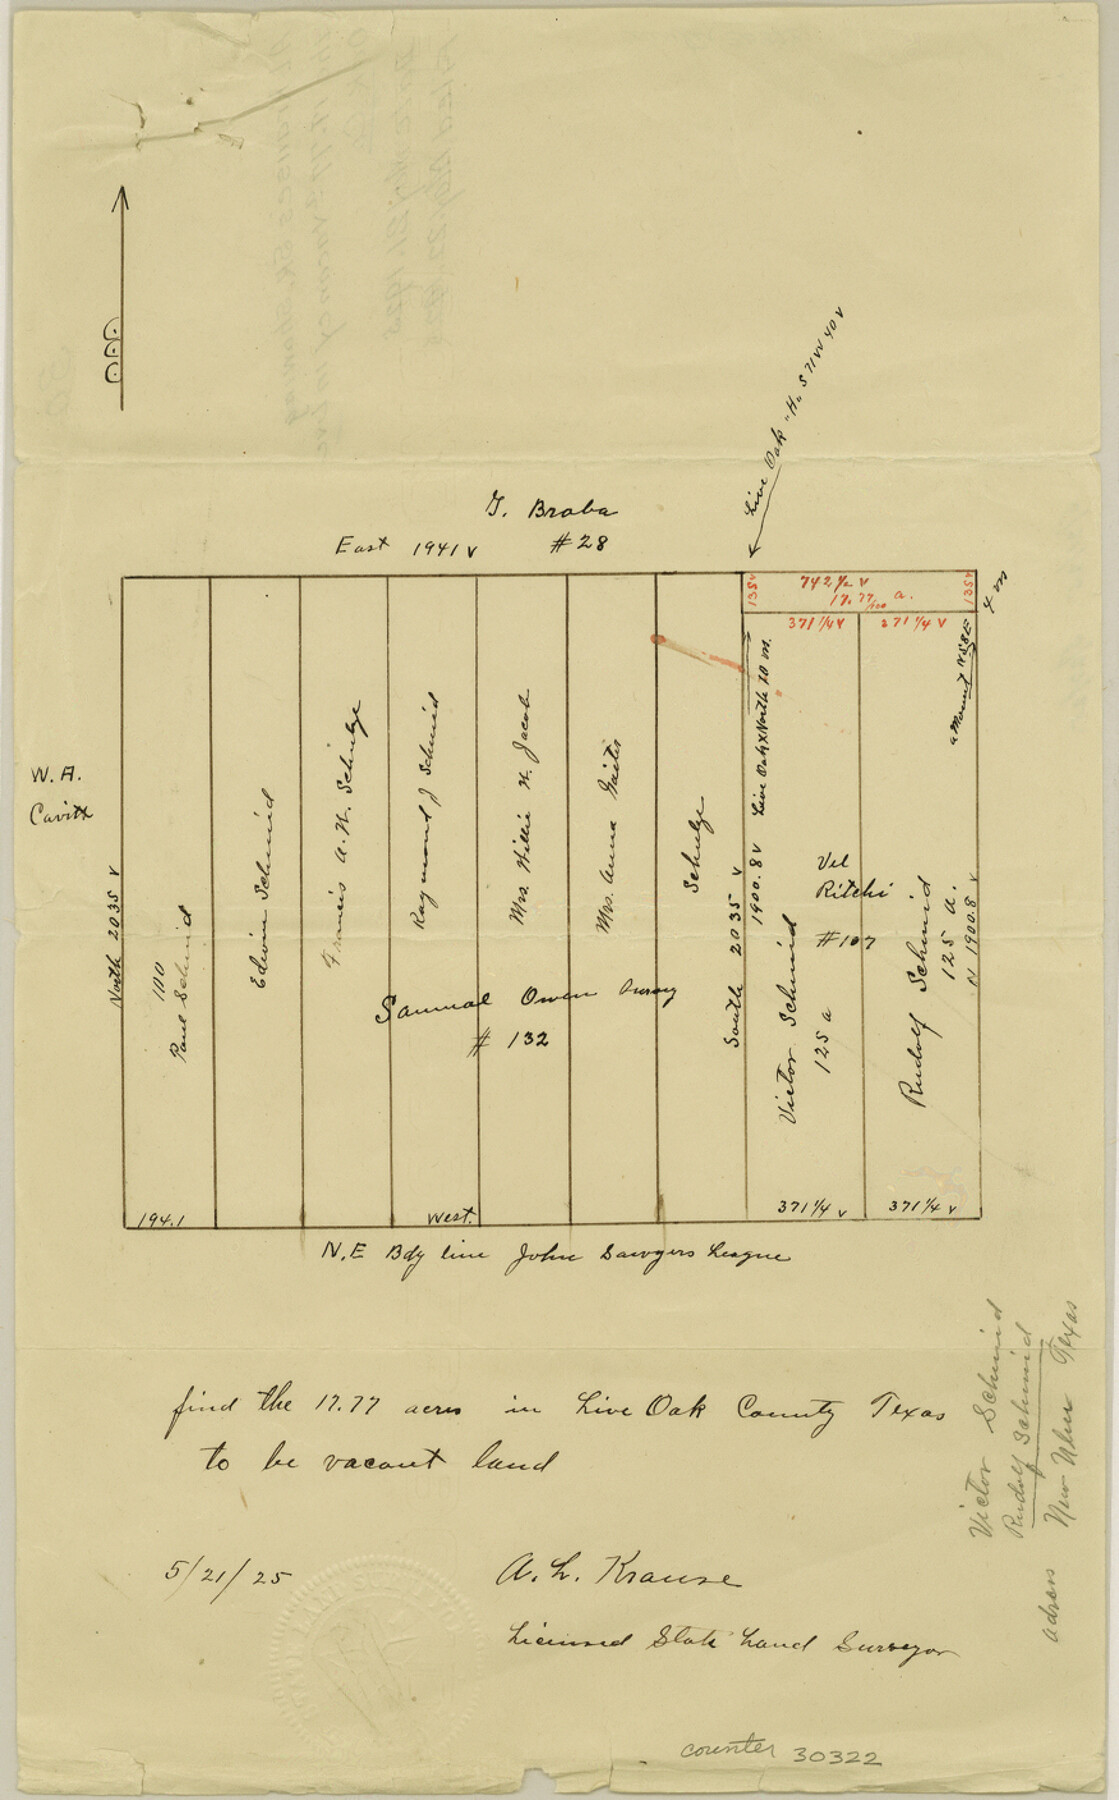 Live Oak "H." S 71 W 40 v
G. Braba
East 1941 v #28
135 v
742 1/2 v
17.77/100 a.
135 v
4 m
371 1/4 v
371 1/4 v
W. A.
Cavitt
North 2035 v
100
Paul Schmid
Edwin Schmid
Francis A. W. Schulze
Raymond J Schmid
Mrs. Willie H. Jacob
Mrs. Anna
Schulze
South 2035 v
1900.8 v Live Oak X North 10 m.
a Mound N 58 E
Vel
Ritchi
#107
Victor Schmid
125 a
Rudolf Schmid
125 a.
N 1900.8 v
Samual Owen Survey
# 132
194.1
West.
371 1/4 v
371 1/4 v
N.E Bdy line John Sawyers League
find the 17.77 acres in Live Oak County Texas
to be vacant land
5/21/25
A. L. Krause
Licensed State Land Surveyor
Victor Schmid
Rudolf Schmid
adress New Ulm Texas
counter 30322